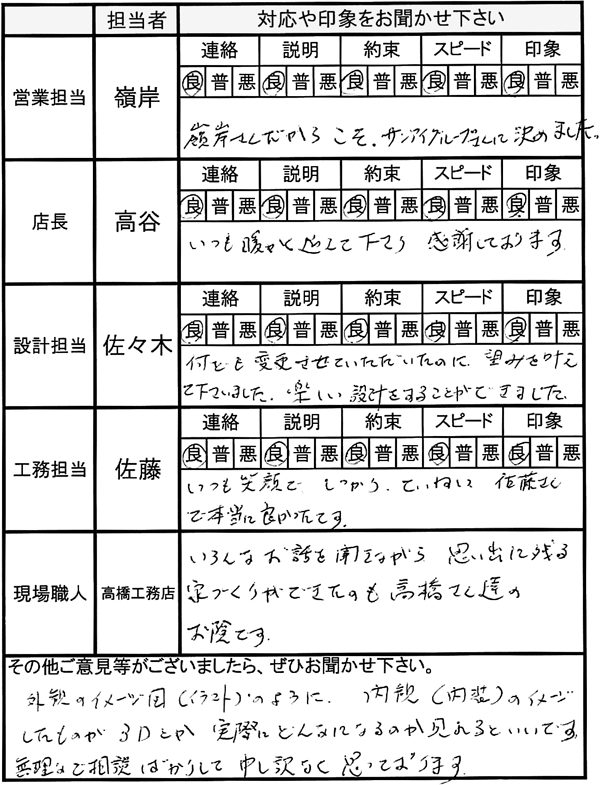 担当者 対応や印象をお聞かせ下さい
連絡 説明 約束 スピード 印象
営業担当 嶺岸 良 普 悪 良 普 悪 良 普 悪 良 普 悪 良 普 悪
嶺岸さんだからこそ、サンアイグループさんに決めました。
連絡 説明 約束 スピード 印象
店長 高谷 良 普 悪 良 普 悪 良 普 悪 良 普 悪 良 普 悪
いつも暖かく迎えて下さり 感謝しております
連絡 説明 約束 スピード 印象
設計担当 佐々木 良 普 悪 良 普 悪 良 普 悪 良 普 悪 良 普 悪
何ども変更させていただいたのに、望みを叶え
て下さいました。楽しい設計をすることができました。
連絡 説明 約束 スピード 印象
工務担当 佐藤 良 普 悪 良 普 悪 良 普 悪 良 普 悪 良 普 悪
いつも笑顔で しっかり、ていねいに 佐藤さん
で本当に良かったです。
現場職人 高橋工務店
いろんなお話を聞きながら 思い出に残る
家づくりができたのも高橋さん達の
お陰です。
その他ご意見等がございましたら、ぜひお聞かせ下さい。
外観のイメージ図(イラスト)のように、内観(内装)のイメージ
したものが3Dとか 実際にどんなになるのか見れるといいです。
無理なご相談ばかりして申し訳なく思っております。